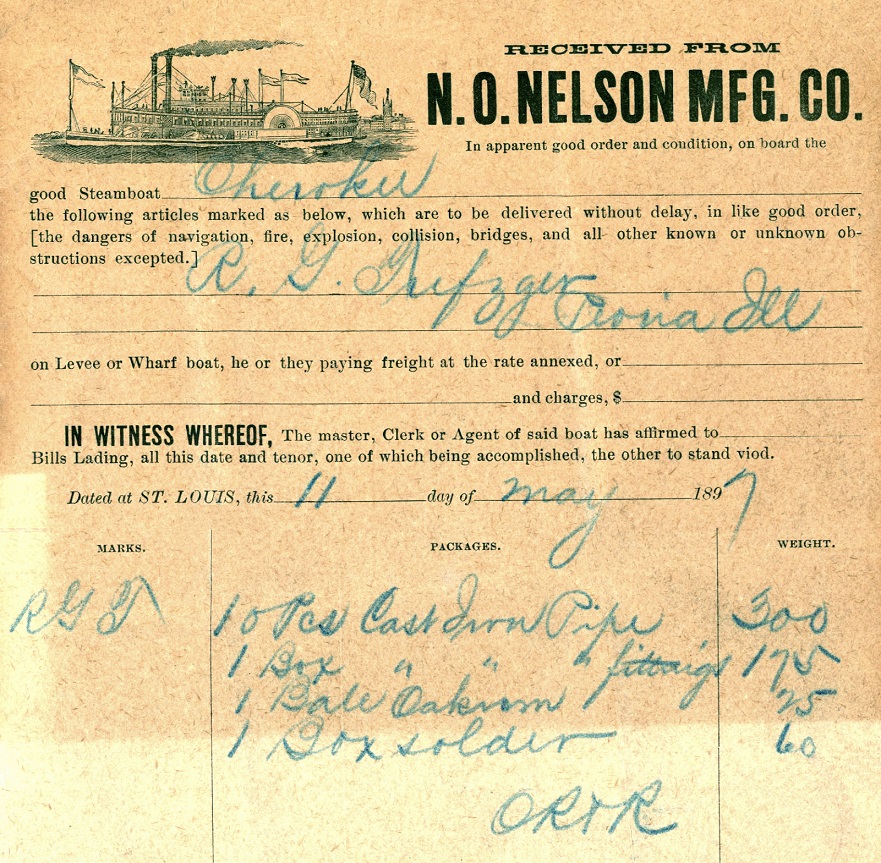 RECEIVED FROM
N. O. NELSON MFG. CO.
In apparent good order and condition, on board the
good Steamboat Cherokee
the following articles marked as below, which are to be delivered without delay, in like good order,
[the dangers of navigation, fire, explosion, collision, bridges, and all other known or unknown ob-
structions excepted.]
R. G.
Peoria Ill
on Levee or Wharf boat, he or they paying freight at the rate annexed, or
and charges, $
IN WITNESS WHEREOF, The master, Clerk or Agent of said boat has affirmed to
Bills Lading, all this date and tenor, one of which being accomplished, the other to stand viod.
Dated at ST. LOUIS, this 11 day of may 1897
MARKS. PACKAGES. WEIGHT.
RGT 10 Pcs Cast Iron Pipe 300
1 Box " " " fittings 175
1 Bale Oakum 25
1 Box solder 60